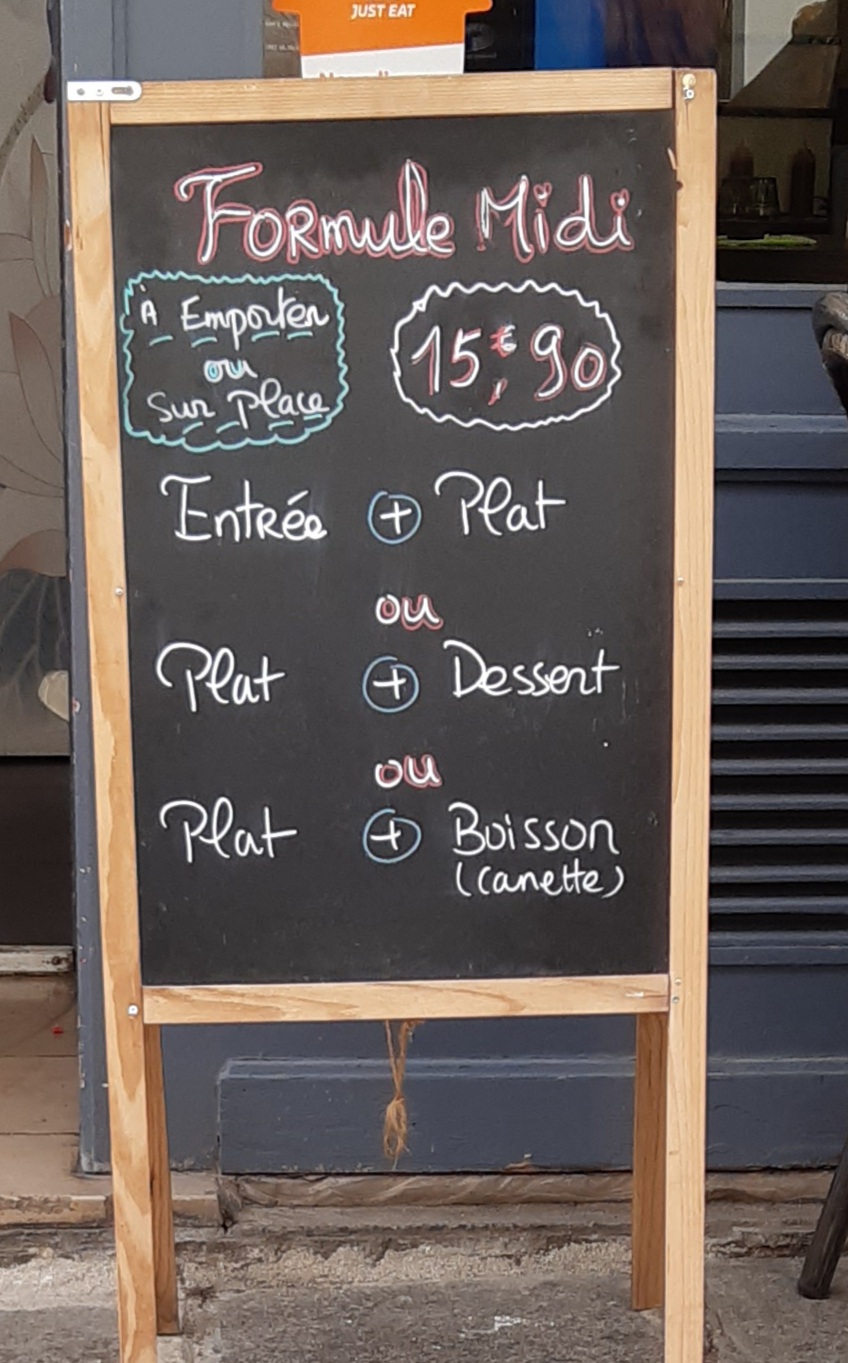 JUST EAT
Formule Midi
À Emporter
ou
Sur Place
15,€90
Entrée + Plat
ou
Plat + Dessert
ou
Plat + Boisson
(canette)